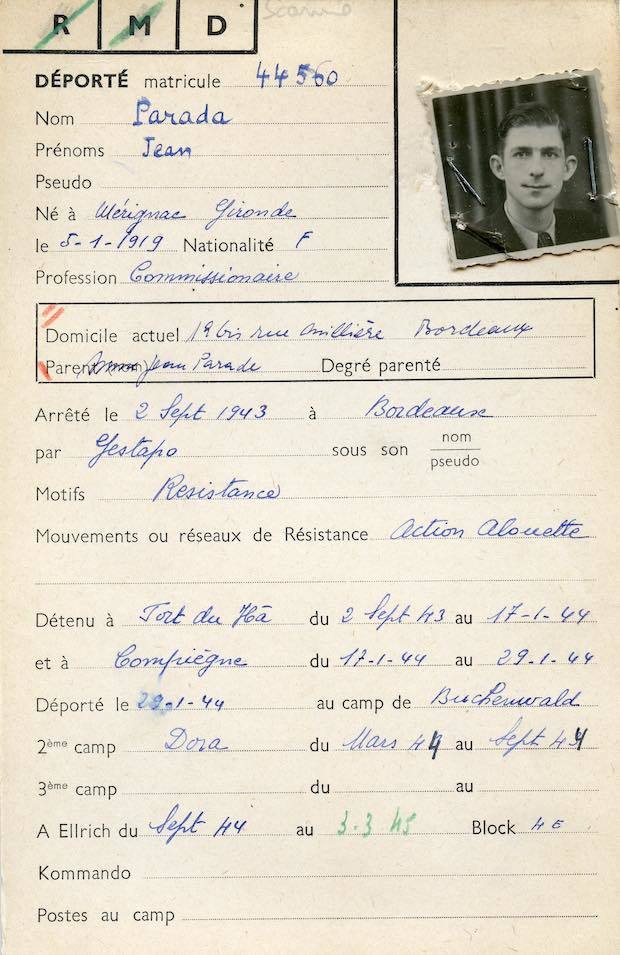 Scanné
R M D
DÉPORTÉ matricule 44560
Nom Parada
Prénoms Jean
Pseudo
Né à Mérignac Gironde
le 5-1-1919 Nationalité F
Profession Commissionaire
Domicile actuel 19 bis rue Bordeaux
Parent Jean Parade Degré parenté
Arrêté le 2 Sept 1943 à Bordeaux
par Gestapo sous son nom
pseudo
Motifs Resistance
Mouvements ou réseaux de Résistance Action Alouette
Détenu à Fort du Hâ du 2 Sept 43 au 17-1-44
et à Compiègne du 17-1-44 au 29.1.44
Déporté le 29-1-44 au camp de Buchenwald
2ème camp Dora du Mars 44 au Sept 44
3ème camp du au
A Ellrich du Sept 44 au 3.3.45 Block 4E
Kommando
Postes au camp